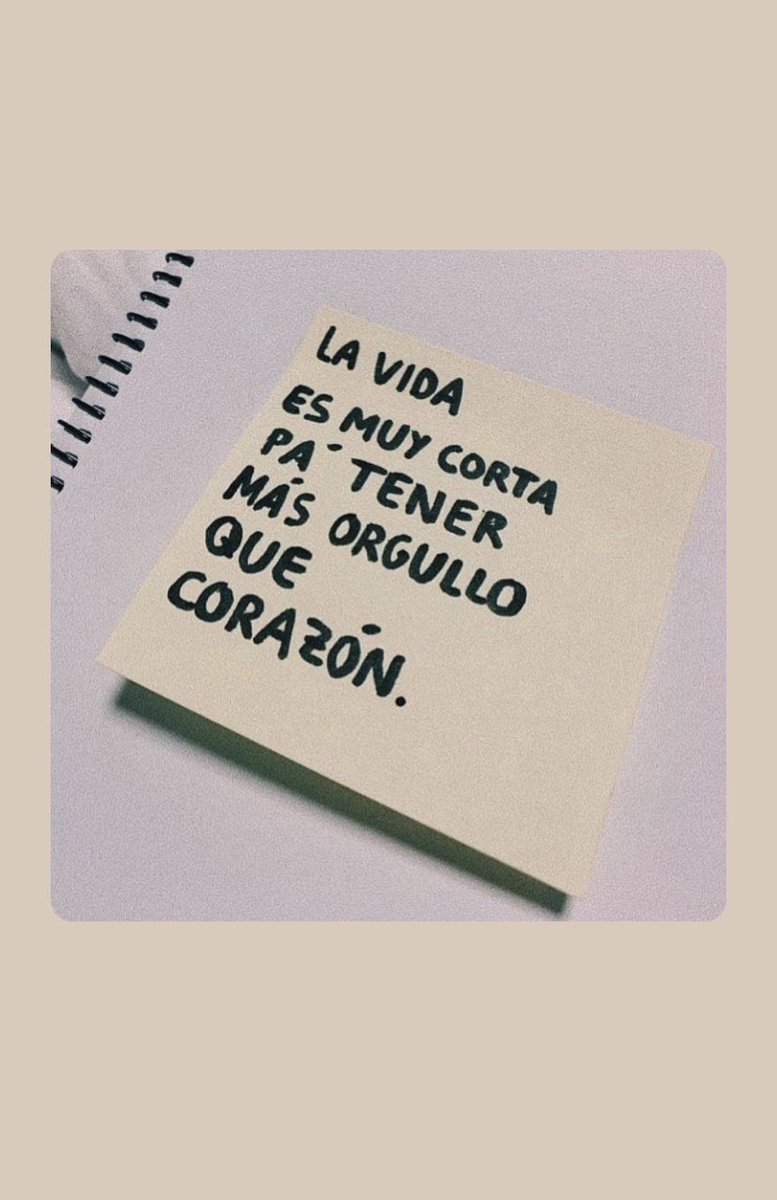 LA VIDA
ES MUY CORTA
PA´ TENER
MÁS ORGULLO
QUE
CORAZÓN.